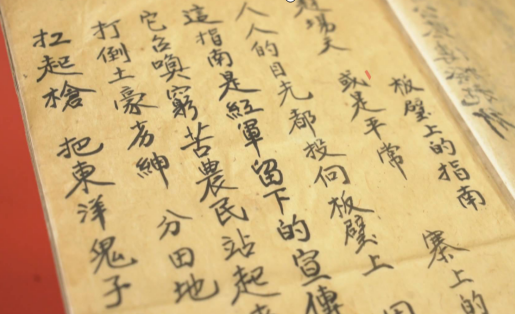 板壁上的指南 寨上的
或是平常
趕場天
人人的目光都投向板壁上
這指南是紅軍留下的宣傳
它召喚窮苦農民站起
打倒土豪劣紳 分田地
扛起槍 把東洋鬼子